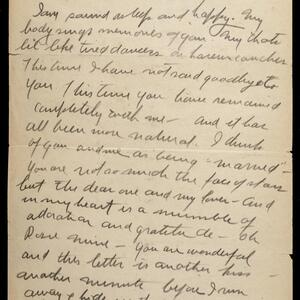 I am sound asleep and happy. My
body sings memories of you - my thots
lit like tired dancers on harem couches
This time I have not said goodbye to
you. This time you have remained
completely with me - and it has
all been more natural. I think
of you and me as being "married" -
You are not so much the face of stars
but the dear one and my lover - and
in my heart is a mumble of
adoration and gratitude - oh
Rose mine - you are wonderful
and this letter is another kiss -
another minute before I run
away &